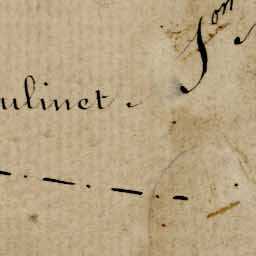 ulinet.
Jon